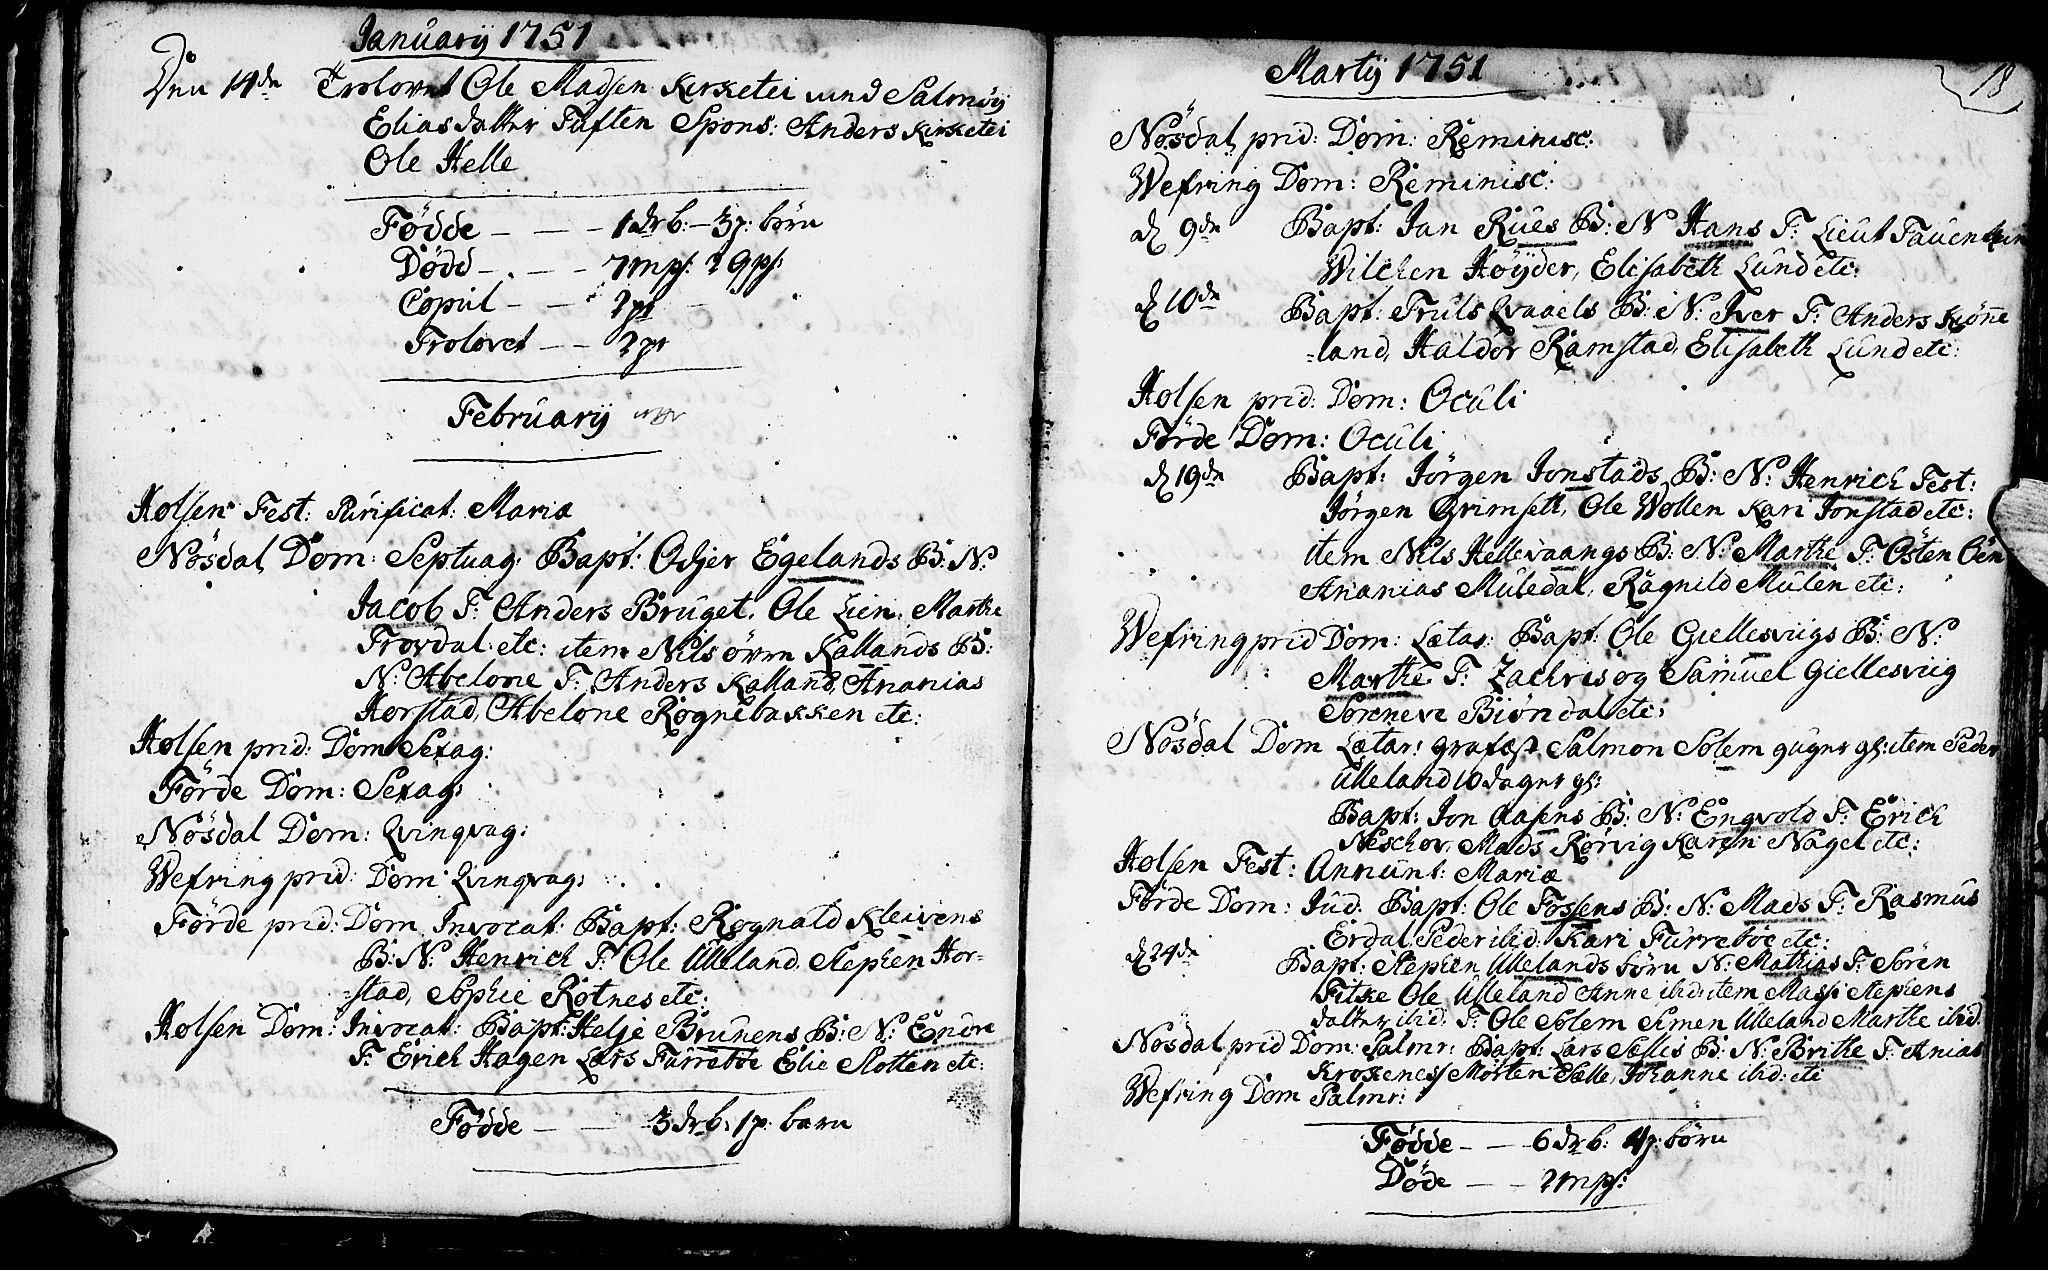 January 1751
Den 14de Trolovet Ole Madsen Kirketei und Salmøÿ
Eliasdatter Tuften Spons: Anders Kirketei
Ole Helle
Födde - - - 1 drb: - 3 p: börn
Dödd - . - - 7 mps: 2 qps:
Copul - - - 2 pr
Trolovet - - 2 pr
February
Holsen Fest: Purificat: Mariæ
Nösdal Dom: Septuag: Bapt: Odjer Egelands B: N:
Jacob F: Anders Bruget. Ole Lien. Marthe
Trovdal etc: item Nils övre Kallands B:
N: Abelone F: Anders Kalland, Ananias
Horstad, Abelone Rognebakken etc:
Holsen prid: Dom Sexag:
Förde Dom: Sexag:
Nösdal Dom: Qvinqvag:
Wefring prid: Dom Qvinqvag:
Förde prid: Dom Invocat: Bapt: Rognald Kleivens
B: N: Henrich F: Ole Ulleland. Stephen Hor-
-stad, Sophie Rotnes etc:
Holsen Dom: Invocat: Bapt: Helje Brunens B: N: Endre
F: Erich Hagen Lars Farrebøe Elie Slotten etc:
Födde - - 3 drb: 1 p: barn
Martij 1751
18
Nösdal prid: Dom: Reminisc:
Wefring Dom: Reminisc:
d 9de Bapt: Jan Rües B: N Hans F: Lieut Tauenstein
Wilchen Höÿder, Elisabeth Lund etc:
d 10de Bapt: Truls Qvaaels B: N: Iver F: Anders Kiönne
-land, Haldor Ramstad, Elisabeth Lund etc:
Holsen prid: Dom: Oculi
Förde Dom: Oculi
d 19de Bapt: Jörgen Jonstads B: N: Henrich Test:
Jörgen Grimseth, Ole Wollen Kari Jonstad etc:
item Nils Hellevaangs B: N: Marthe F: Östen Öen
Ananias Muledal, Ragnild Mulen etc:
Wefring prid Dom: Lætar: Bapt: Ole Giellesviigs B: N:
Marthe F: Zachris og Samuel Giellesviig
Sønneve Biöndal etc:
Nösdal Dom Lætar: grafæst Salmon Solem 9 uger gl: item Peder
Ulleland 10 dager gl:
Bapt: Jon Aasens B: N: Engvold F: Erich
Neschov, Mads Rørvig Karen Nagel etc:
Holsen Fest: Annunt: Mariæ
Förde Dom: Jud. Bapt: Ole Fossens B: N: Mads F: Rasmus
Erdal, Peder ibid: Kari Furreböe etc:
d 24de Bapt: Stephen Ullelands börn N: Mathias F: Sören
Fitke Ole Ulleland Anne ibid: item Massi Stephens
datter ibid: F: Ole Solem Simen Ulleland Marthe ibid.
Nosdal prid Dom: Palmr: Bapt: Lars Sellis B: N: Brithe F: Anias
Krokenes, Morten Sælle, Johanne ibid: etc
Wefring Dom Palmr:
Födde - - 6 drb: 4 p: börn
Döde - - 2 mps: